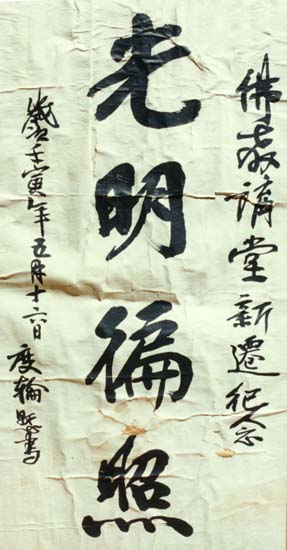 佛教講堂新遷紀念
光明徧照
歲壬寅年五月十六日 度輪題書